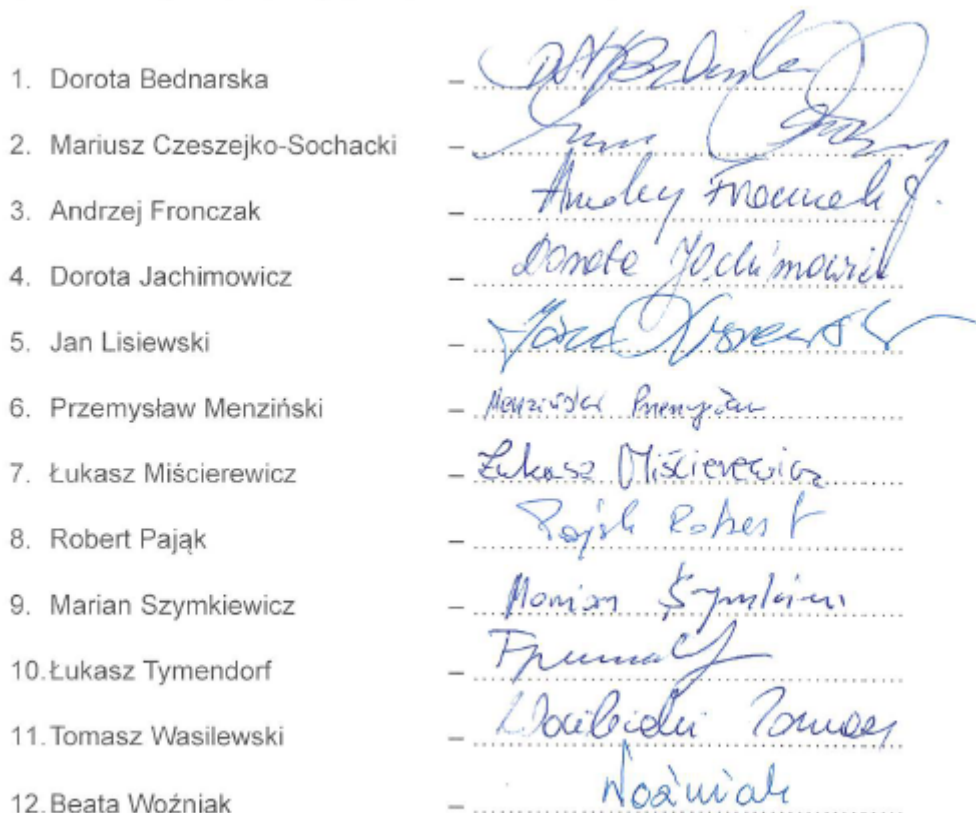 1. Dorota Bednarska –
2. Mariusz Czeszejko-Sochacki –
3. Andrzej Fronczak –
4. Dorota Jachimowicz – Dorota Jachimowicz
5. Jan Lisiewski –
6. Przemysław Menziński – Menziński Przemysław
7. Łukasz Miścierewicz – Łukasz Miścierewicz
8. Robert Pająk – Pająk Robert
9. Marian Szymkiewicz – Marian
10. Łukasz Tymendorf –
11. Tomasz Wasilewski – Tomasz
12. Beata Woźniak – Woźniak